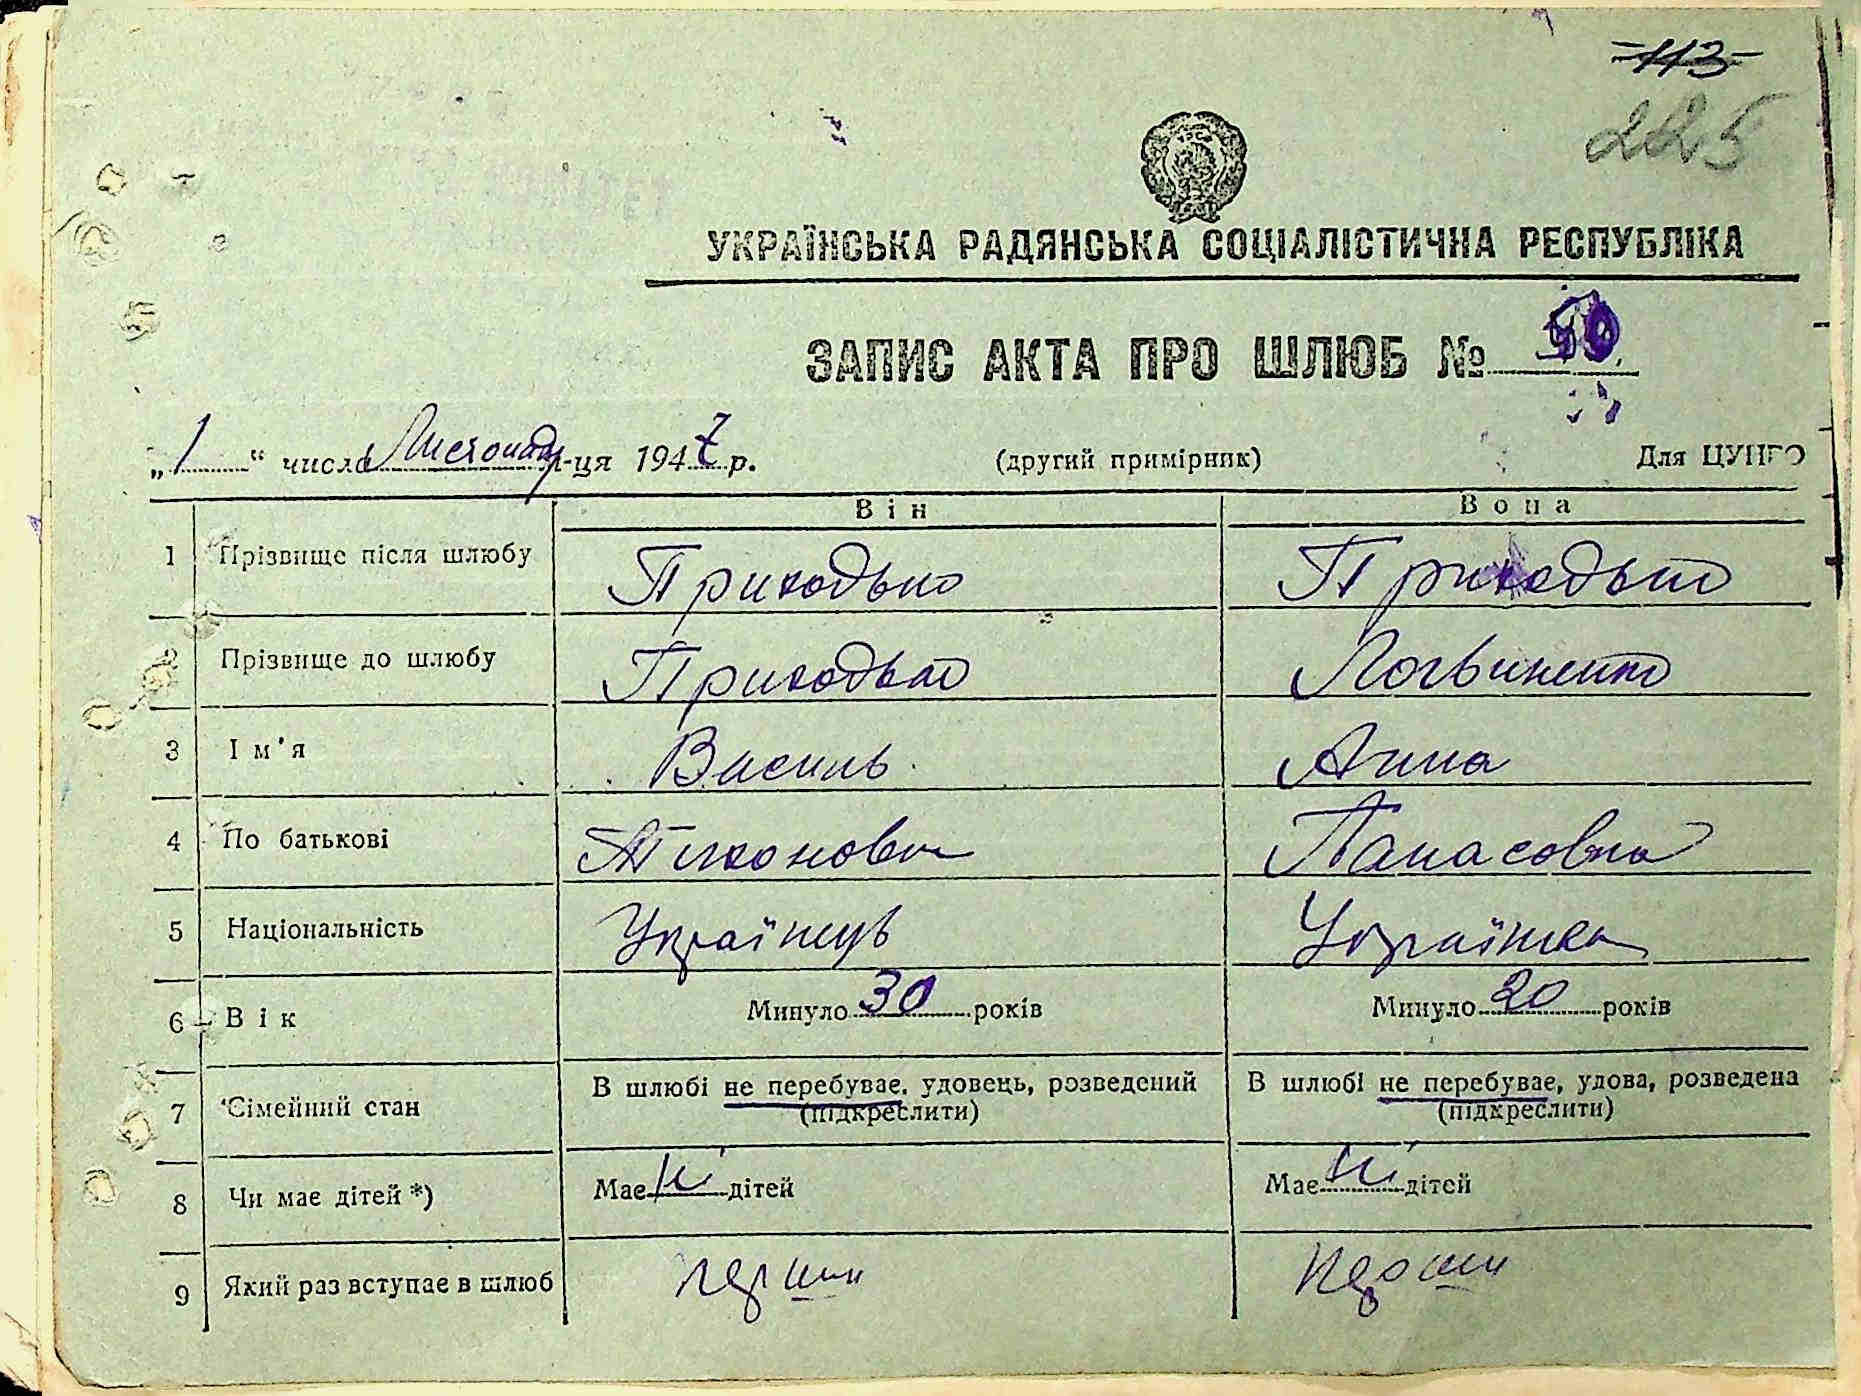 113
225
УКРАЇНСЬКА РАДЯНСЬКА СОЦІАЛІСТИЧНА РЕСПУБЛІКА
ЗАПИС АКТА ПРО ШЛЮБ № 50
„1“ числа Листопад м-ця 1947 р. (другий примірник) Для ЦУПГО
Він Вона
1 Прізвище після шлюбу Приходько Приходько
2 Прізвище до шлюбу Приходько Логвиненко
3 Ім'я Василь Анна
4 По батькові Тихонович Панасовна
5 Національність Українець Українка
6 Вік Минуло 30 років Минуло 20 років
7 Сімейний стан В шлюбі не перебуває, удовець, розведений (підкреслити) В шлюбі не перебуває, удова, розведена (підкреслити)
8 Чи має дітей *) Має ні дітей Має ні дітей
9 Який раз вступає в шлюб перши перши